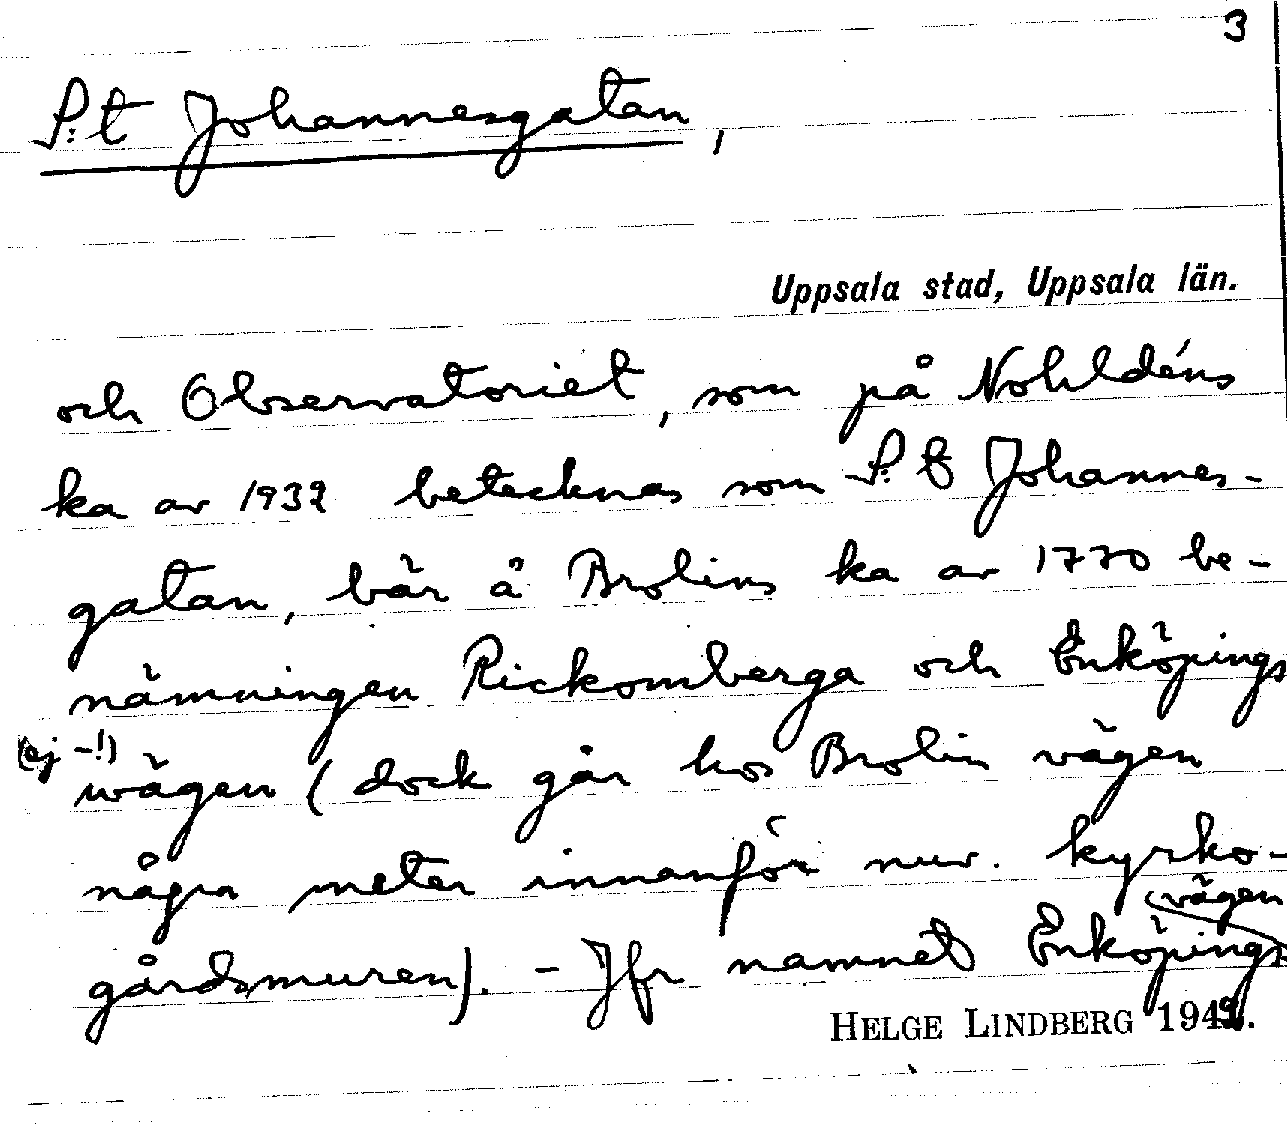 3
S:t Johannesgatan,
Uppsala stad, Uppsala län.
och Observatoriet, som på Nohldéns
ka av 1932 betecknas som S:t Johannes-
gatan, bär å Brolins ka av 1770 be-
nämningen Rickomberga och Enköpings
(ej -!)
wägen (dock går hos Brolin vägen
några meter innanför nuv. kyrko-
gårdsmuren). - Jfr namnet Enköpings
vägen
HELGE LINDBERG